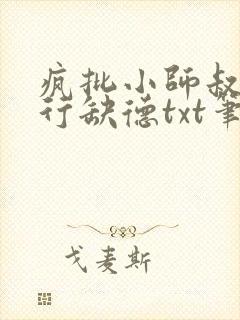 疯批小师叔
行缺德txt笔
戈麦斯